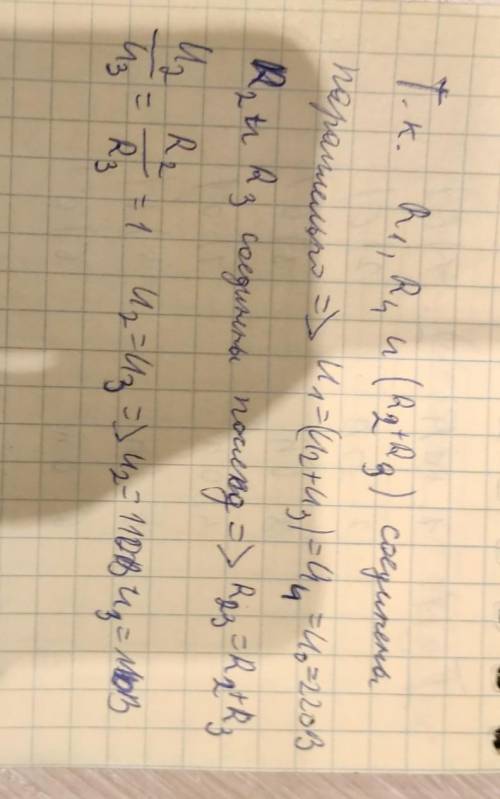 Т.к. R1, R4 и (R2+R3) соединены
параллельно => U1=(U2+U3)=U4=U0=220В
R2 и R3 соединины послед => R23=R2+R3
U2/U3 = R2/R3 = 1 U2=U3 => U2=110В U3=110В